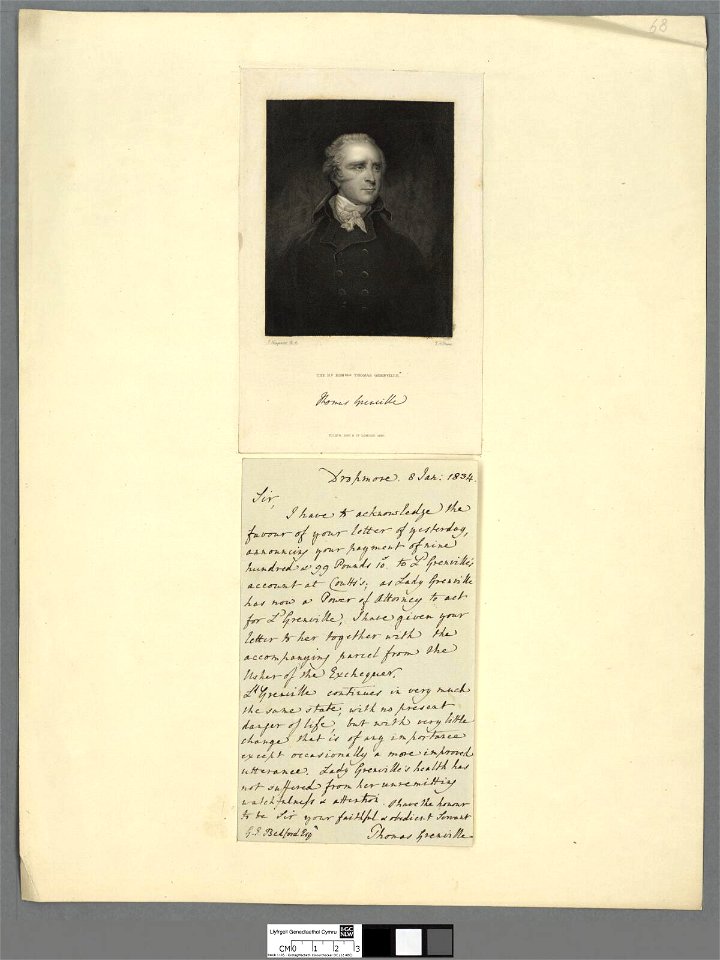 68
THE RT HONBLE THOMAS GRENVILLE.
Thomas Grenville
Dropmore. 8 Jan: 1834.
Sir,
I have to acknowledge the
favour of your letter of yesterday,
announcing your payment of nine
hundred & 99 Pounds 10s. to Ld Grenville's
account at Coutts's; as Lady Grenville
has now a Power of Attorney to act
for Ld Grenville, I have given your
letter to her together with the
accompanying parcel from the
Usher of the Exchequer.
Ld Grenville continues in very much
the same state, with no present
danger of life, but with very little
change that is of any importance
except occasionally a more improved
utterance. Lady Grenville's health has
not suffered from her unremitting
watchfulness & attention. I have the honour
to be Sir your faithful & obedient Servant
G. P. Bedford Esqr Thomas Grenville
Llyfrgell Genedlaethol Cymru
LLGC
NLW
CM 0 1 2 3